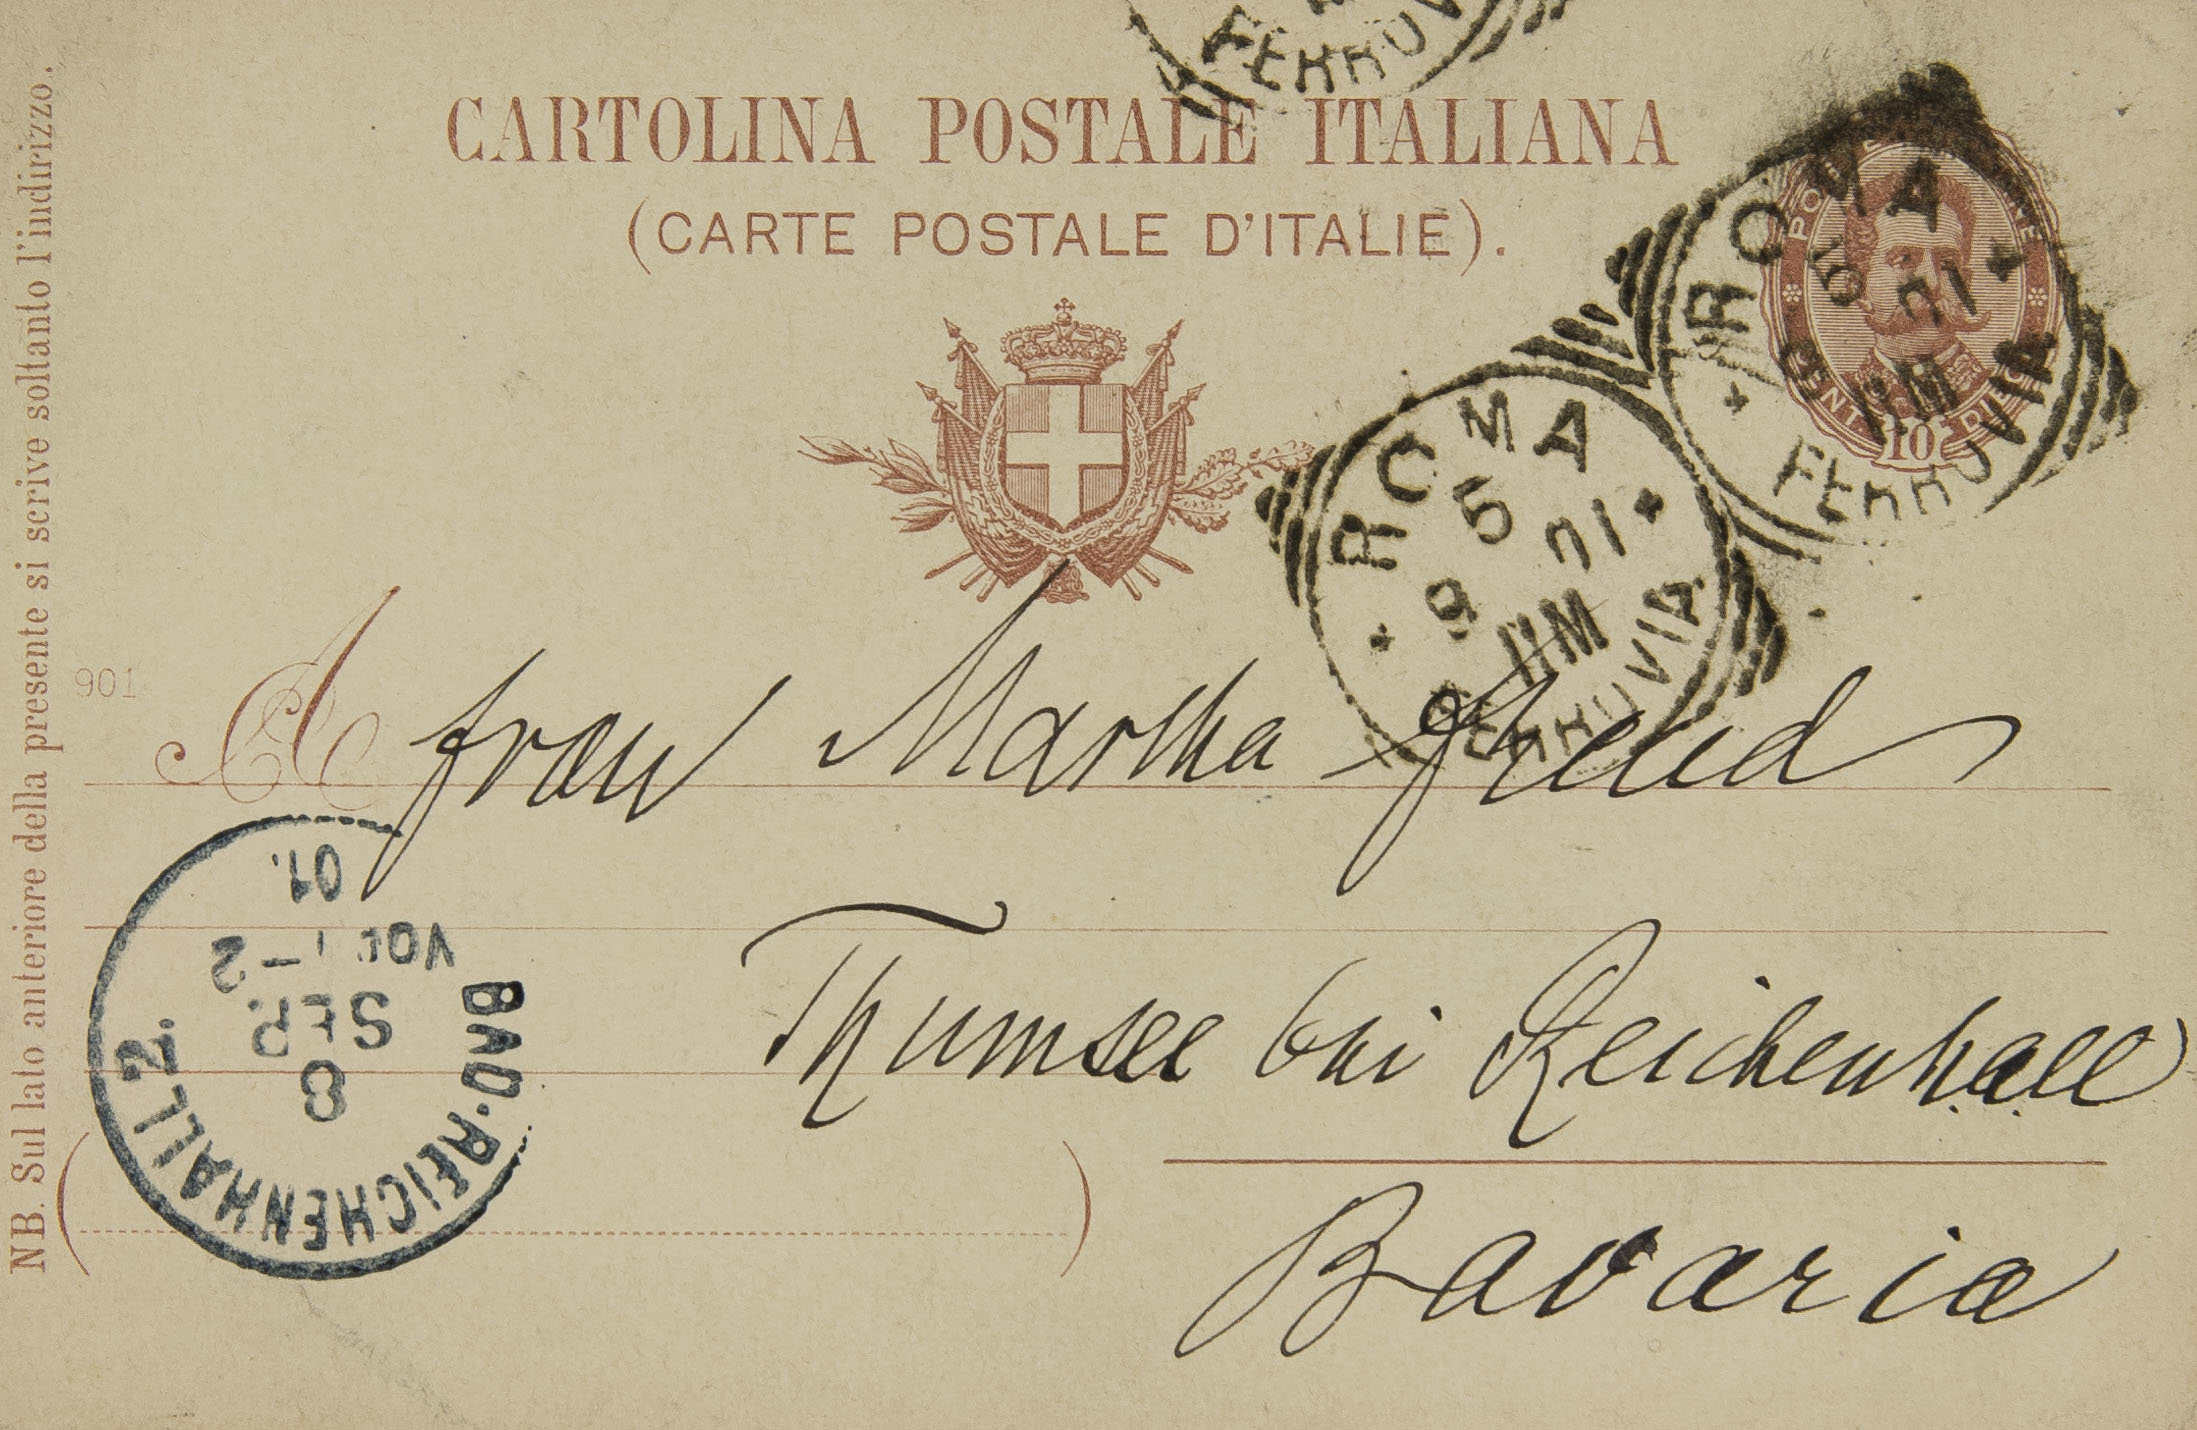 CARTOLINA POSTALE ITALIANA
(CARTE POSTALE D'ITALIE).
NB. Sul lato anteriore della presente si scrive soltanto l'indirizzo.
901
ROMA
5
9
01
FERROVIA
ROMA
5
9
01
FERROVIA
FERROV
10
A
Frau Martha Freud
Thumsee bei Reichenhall
Bavaria
BAD-REICHENHALL 2.
8
SEP.
VOR 1-2
01.